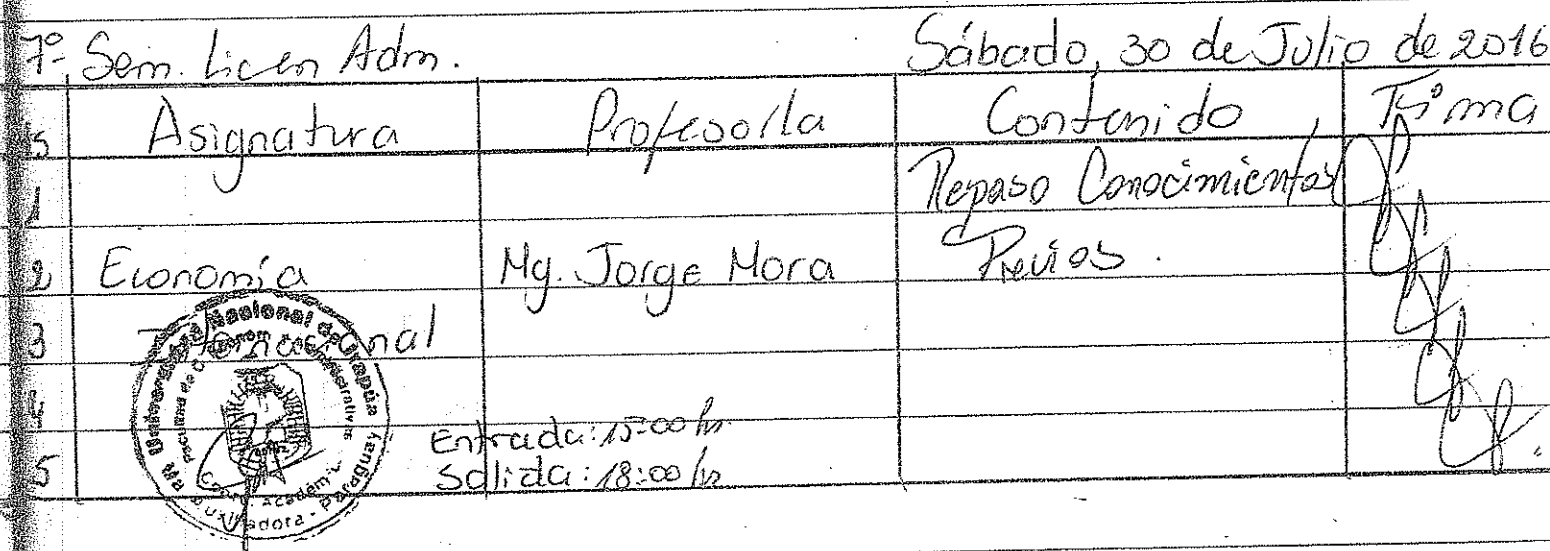 7º Sem. Licen Adm. Sábado, 30 de Julio de 2016
s Asignatura Profesor/la Contenido Firma
1 Repaso Conocimientos
2 Economía Mg. Jorge Mora Previos.
3 Internacional
4
5 Entrada: 15:00 hs
Salida: 18:00 hs
Universidad Nacional de Itapúa
Facultad de
Acadêm
Ma Auxiliadora - Paraguay